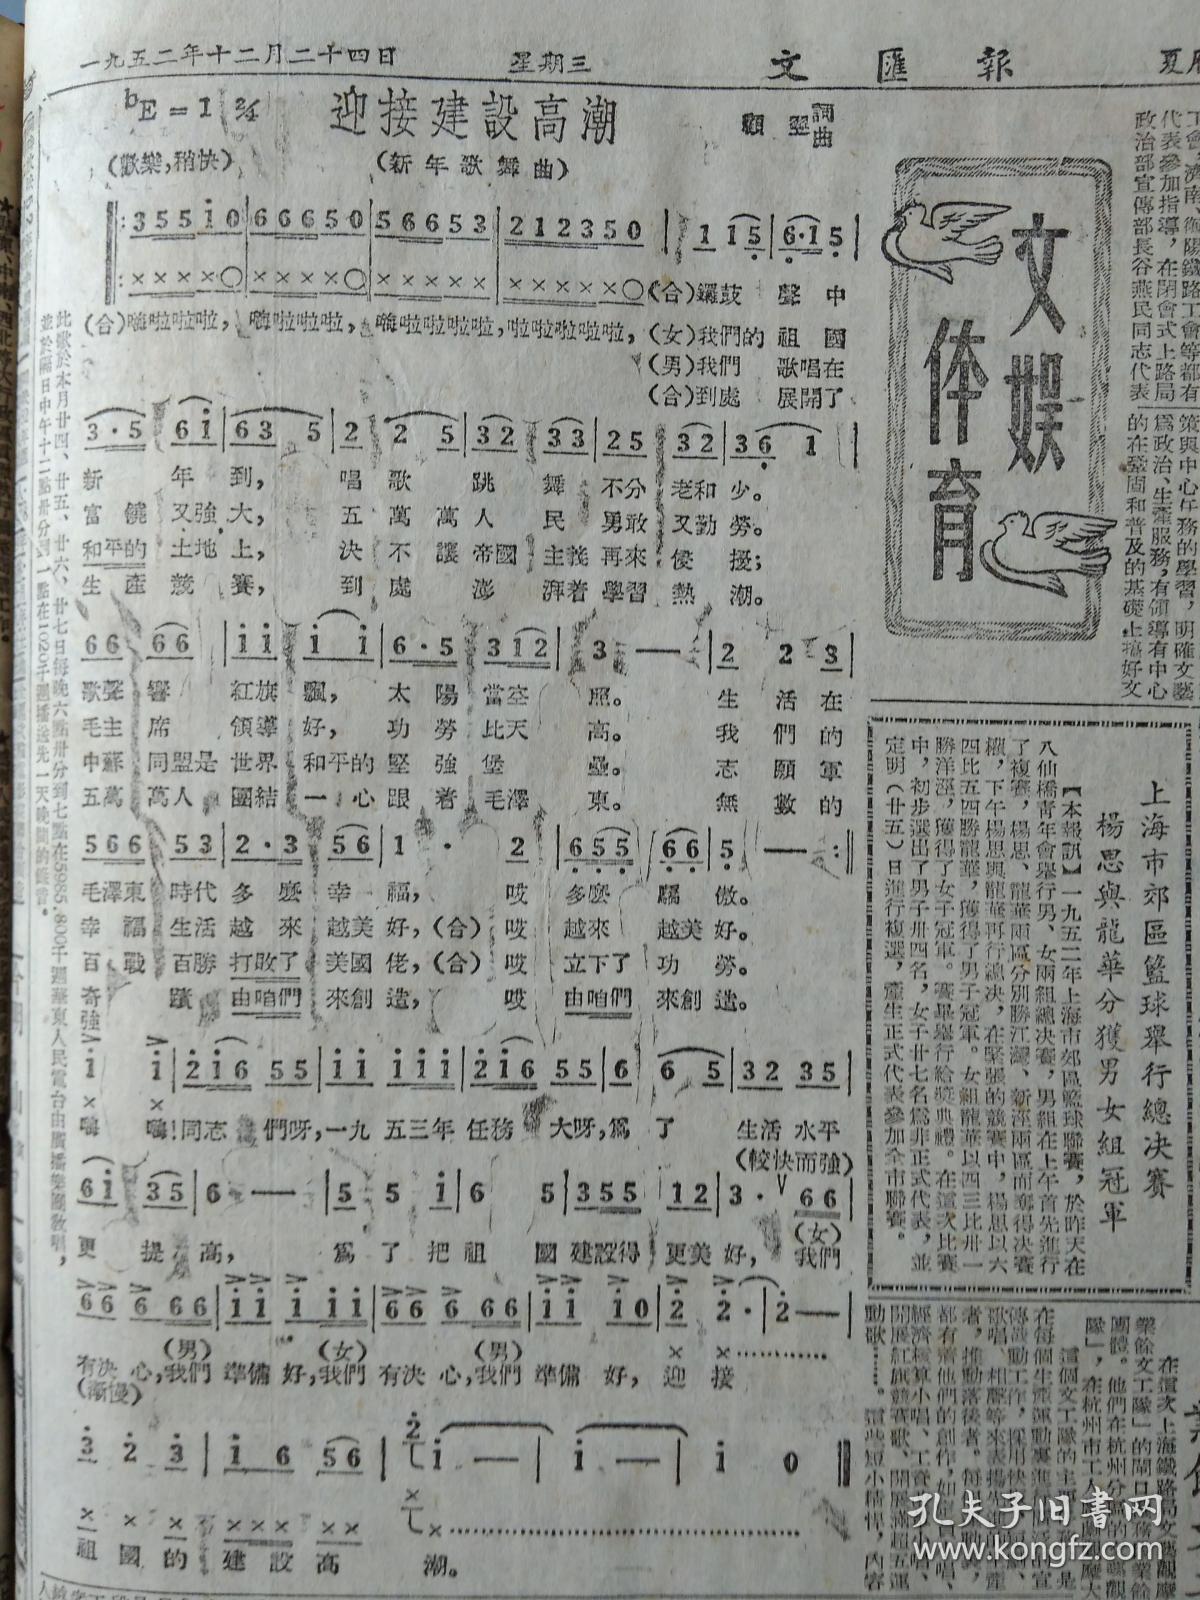 一九五二年十二月二十四日 星期三 文匯報
bE=1 2/4 迎接建設高潮 詞曲
(歡樂,稍快) (新年歌舞曲)
3 5 5 i 0 | 6 6 6 5 0 | 5 6 6 5 3 | 2 1 2 3 5 0 | 1 1 5 | 6·1 5
(合)鑼鼓聲中
(合)嗨啦啦啦, 嗨啦啦啦, 嗨啦啦啦啦, 啦啦啦啦啦, (女)我們的祖國
(男)我們 歌唱在
(合)到處 展開了
3·5 6 i | 6 3 5 | 2 2 5 | 3 2 3 3 | 2 5 3 2 | 3 6 1 |
新年到, 唱歌跳舞不分老和少。
富饒又強大, 五萬萬人民勇敢又勤勞。
和平的土地上, 決不讓帝國主義再來侵擾;
生產競賽, 到處澎湃着學習熱潮。
6 6 6 6 | i i i i | 6·5 3 1 2 | 3 — | 2 2 3 |
歌聲響紅旗飄, 太陽當空照。 生活在
毛主席領導好, 功勞比天高。 我們的
中蘇同盟是世界和平的堅強堡壘。 志願軍
五萬萬人團結一心跟着毛澤東。 無數的
5 6 6 5 3 | 2·3 5 6 | 1 · 2 | 6 5 5 6 6 | 5 — :||
毛澤東時代多麽幸福, 哎多麽驕傲。
幸福生活越來越美好,(合)哎越來越美好。
百戰百勝打敗了美國佬,(合)哎立下了功勞。
奇蹟由咱們來創造, 哎由咱們來創造。
強
i i | 2 i 6 5 5 | i i i i i | 2 i 6 5 5 | 6 6 5 | 3 2 3 5 |
嗨嗨!同志們呀,一九五三年任務大呀,爲了生活水平
(較快而強)
6 i 3 5 | 6 — | 5 5 i | 6 5 | 3 5 5 1 2 | 3 · 6 6 |
(女)
更提高, 爲了把祖國建設得更美好, 我們
6 6 6 6 6 | i i i i i | 6 6 6 6 6 | i i i 0 | 2 2· | 2 — |
(男) (女) (男)
有決心,我們準備好,我們有決心,我們準備好, 迎接
(漸慢)
3 2 3 | i 6 5 6 | i — | i — | i 0 ||
祖國的建設高潮。
此歌於本月廿四、廿五、廿六、廿七日每晚六點卅分到七點在5985, 800千週華東人民電台由廣播樂團教唱,
並於隔日中午十二點卅分到一點在1020千週播送先一天晚間的錄音。
文娛
体育
工會、濟南、衡陽鐵路工會等都有
代表參加指導,在閉會式上路局
政治部宣傳部長谷燕民同志代表
策與中心任務的學習,明確文藝
爲政治、生產服務,有領導有中心
的在鞏固和普及的基礎上搞好文
上海市郊區籃球舉行總決賽
楊思與龍華分獲男女組冠軍
【本報訊】一九五二年上海市郊區籃球聯賽,於昨天在
八仙橋青年會舉行男、女兩組總決賽,男組在上午首先進行
了複賽,楊思、龍華兩區分別勝江灣、新涇兩區而奪得決賽
權,下午楊思與龍華再行總決,在緊張的競賽中,楊思以六
四比五四勝龍華,獲得了男子冠軍。女組龍華以四三比卅一
勝洋涇,獲得了女子冠軍。賽畢舉行給獎典禮。在這次比賽
中,初步選出了男子卅四名,女子廿七名爲非正式代表,並
定明(廿五)日進行複選,產生正式代表參加全市聯賽。
在這次上海鐵路局文藝觀摩
業餘文工隊」的閘口
團體。他們在杭州分區的
隊」,在杭州市工人
這個文工隊的主要
在每個生產運動裏進行
傳鼓動工作,採用快板
歌唱、相聲等來表揚
者,推動落後者。每
都有着他們的創作,如
經濟核算小唱、工
開展紅旗競賽歌、開展滿超五運
動歌……。這些短小精悍,內容
孔夫子旧書网
www.kongfz.com